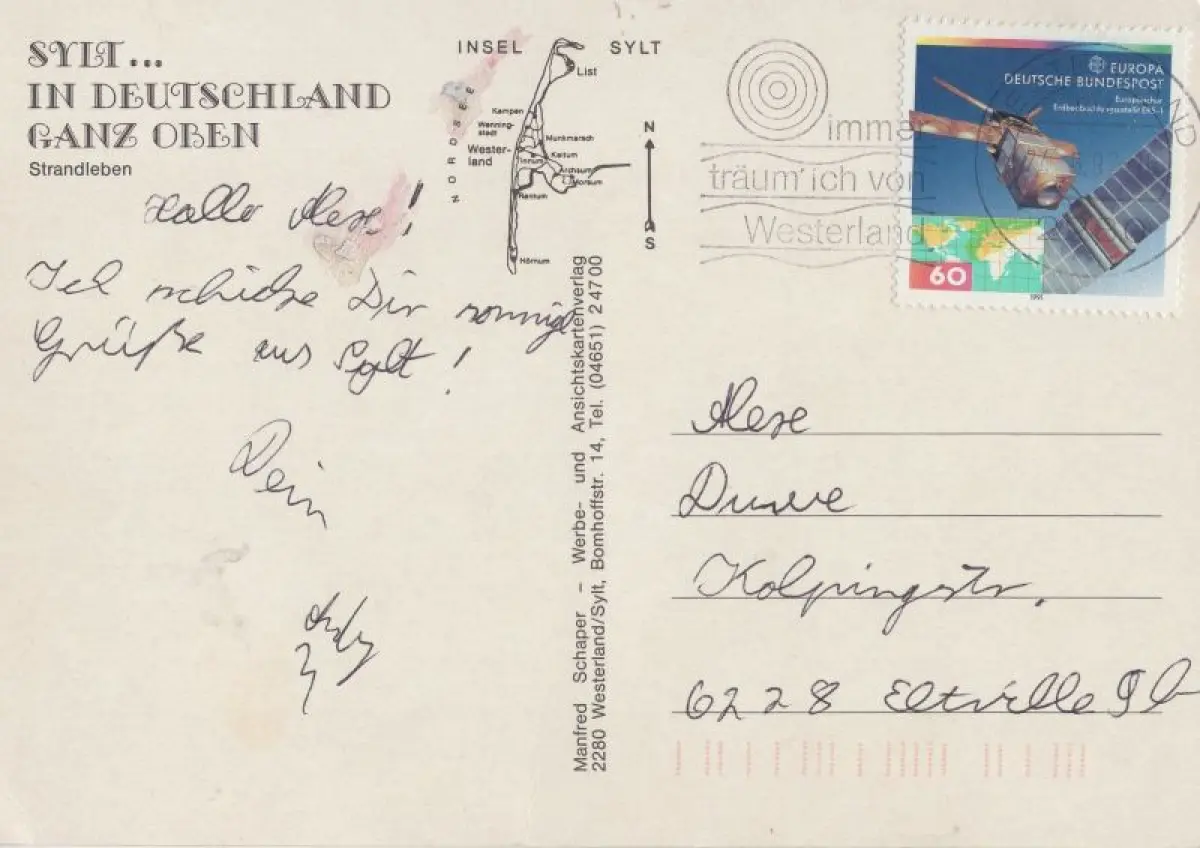 SYLT...
IN DEUTSCHLAND
GANZ OBEN
Strandleben
Hallo Alexe!
Ich schicke Dir sonnige
Grüße aus Sylt!
Dein
INSEL SYLT
NORDSEE
List
Kampen
Wenning-
stedt
Munkmarsch
Wester-
land
Keitum
Tinnum
Archsum
Morsum
Rantum
Hörnum
N
S
Manfred Schaper – Werbe- und Ansichtskartenverlag
2280 Westerland/Sylt, Bomhoffstr. 14, Tel. (04651) 2 47 00
immer
träum' ich von
Westerland
EUROPA
DEUTSCHE BUNDESPOST
Europäischer
Erdbeobachtungssatellit ERS-1
60
1991
Alexe
Duwe
Kolpingstr.
6228 Eltville